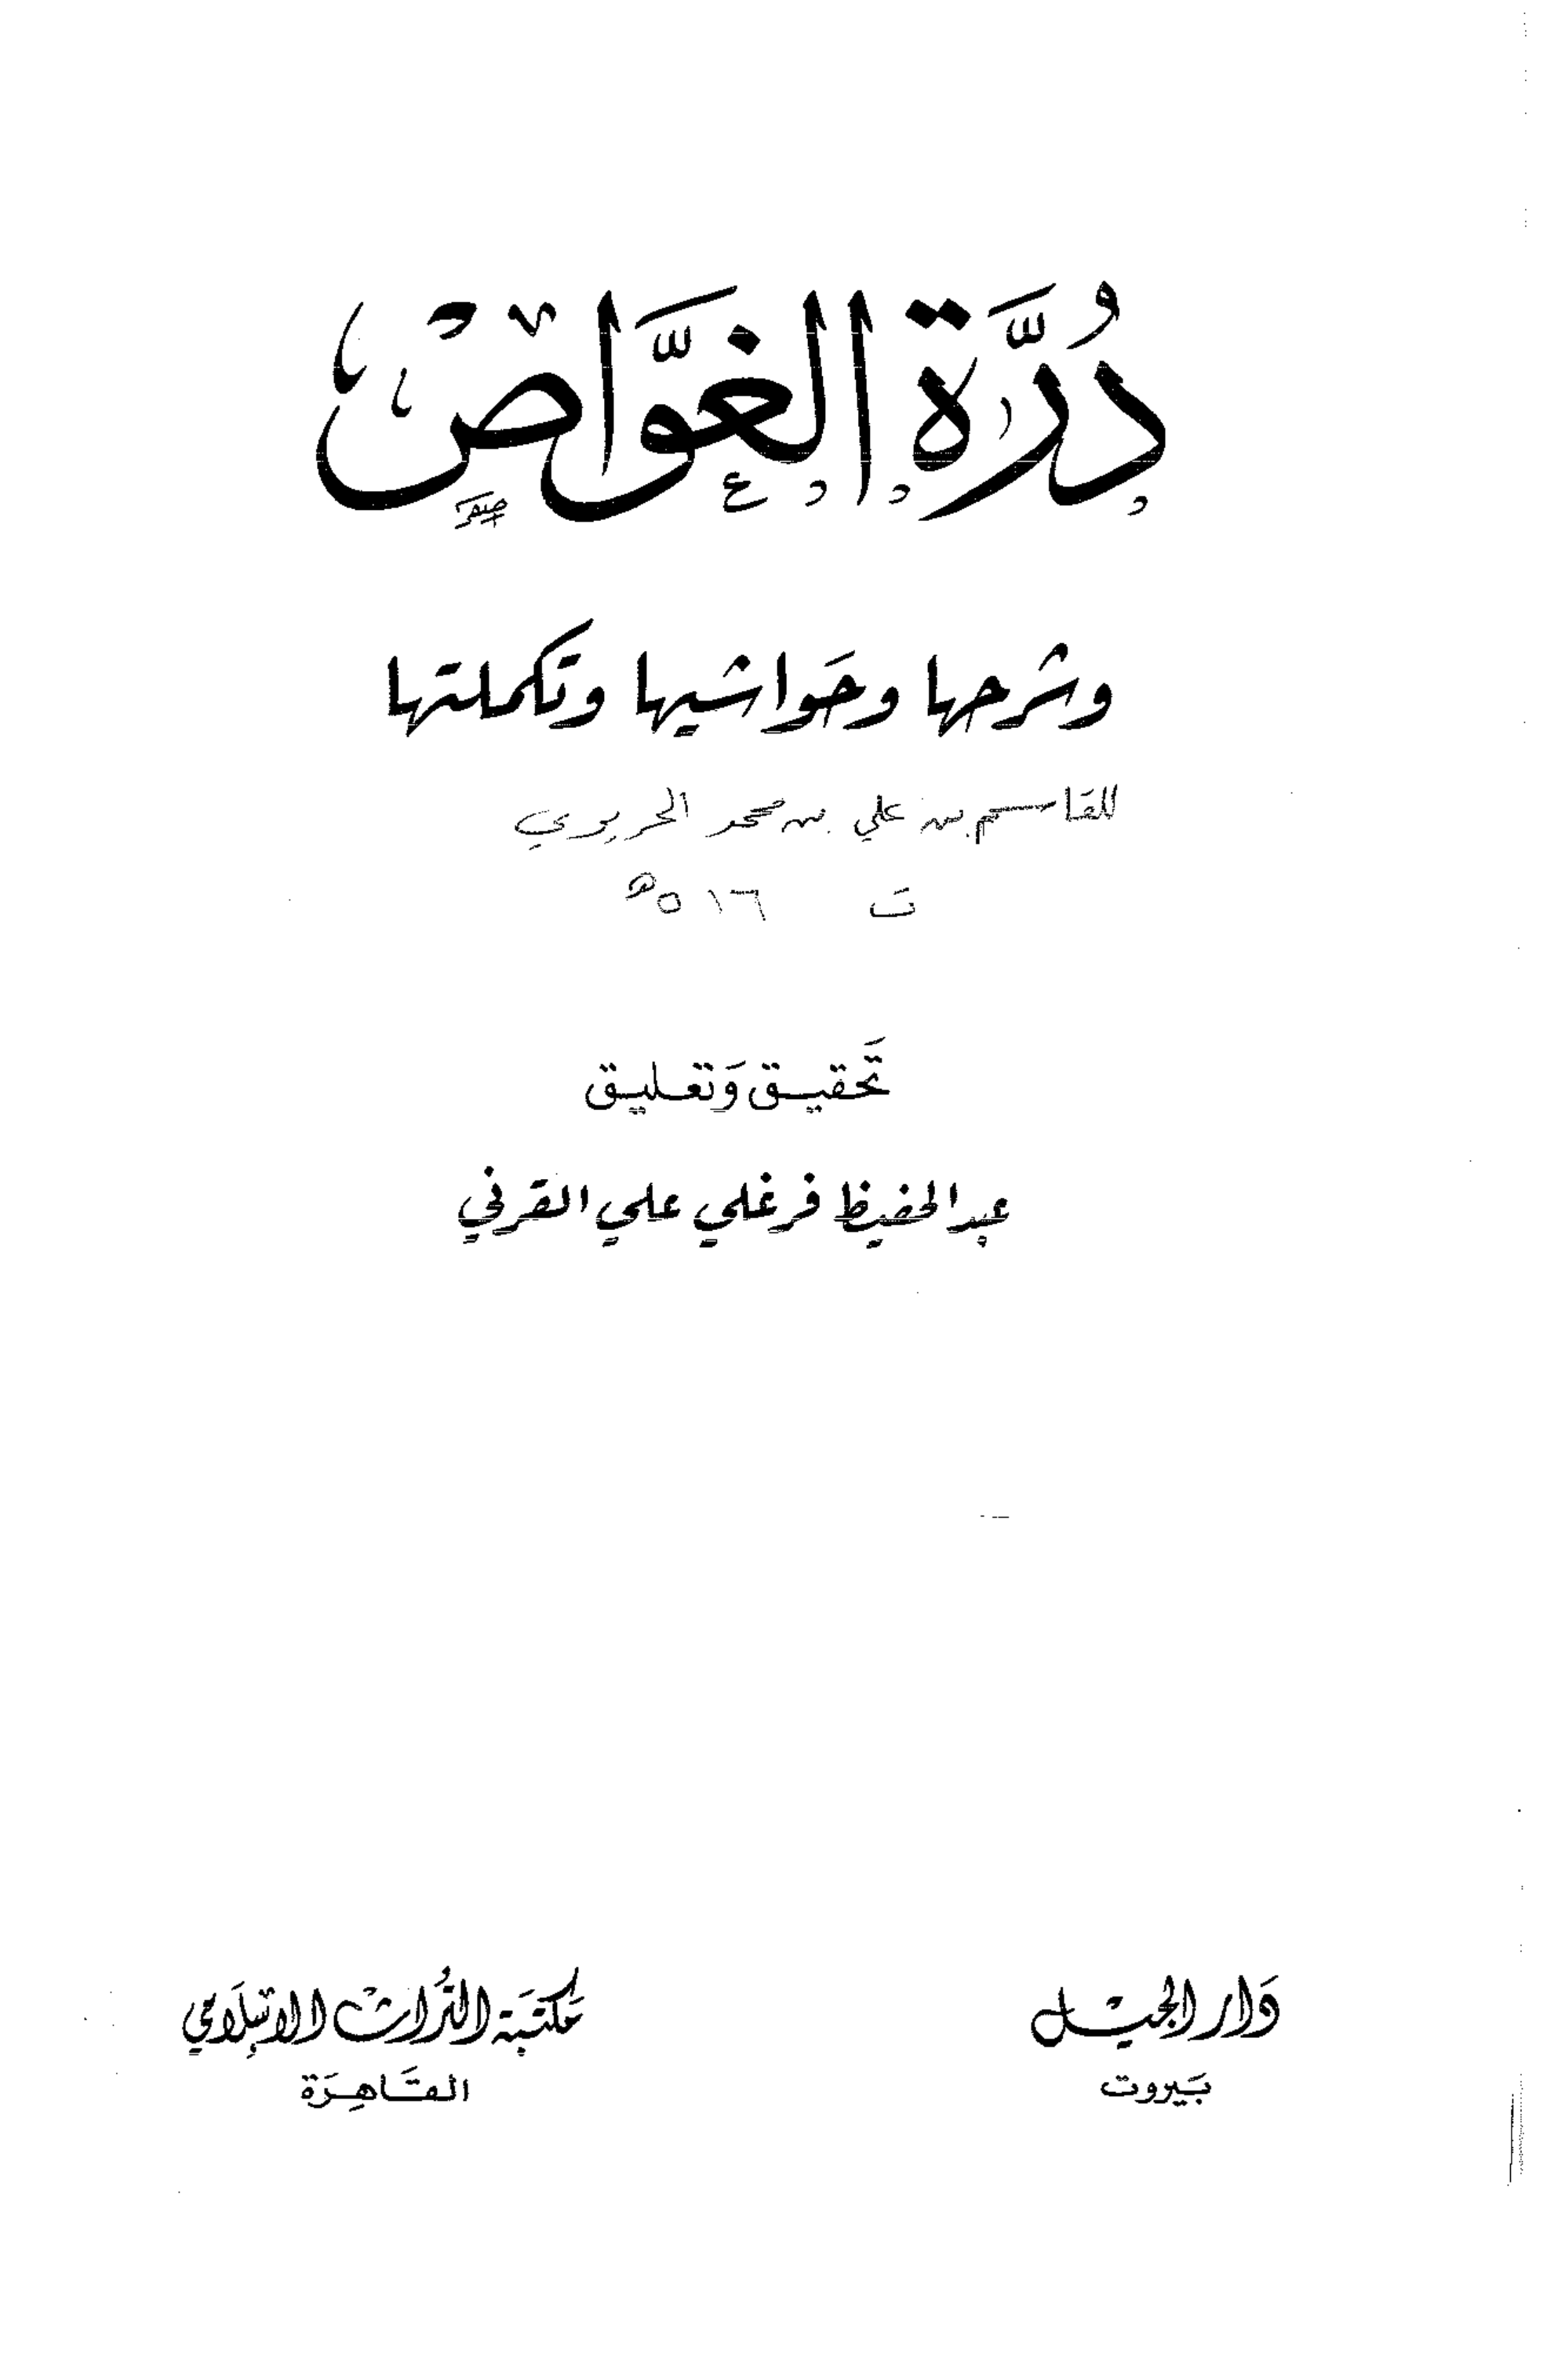 دُرَّة الغَوَّاص
وشرحها وحَواشيها وتكملتها
للقاسم بن علي بن محمد الحريري
ت ٥١٦ ه
تَحقيق وَتعليق
عبد الحفيظ فرغلي علي القرني
دَار الجيل
بَيروت
مَكتبَة التُراث الإسلَامي
القَاهِرَة